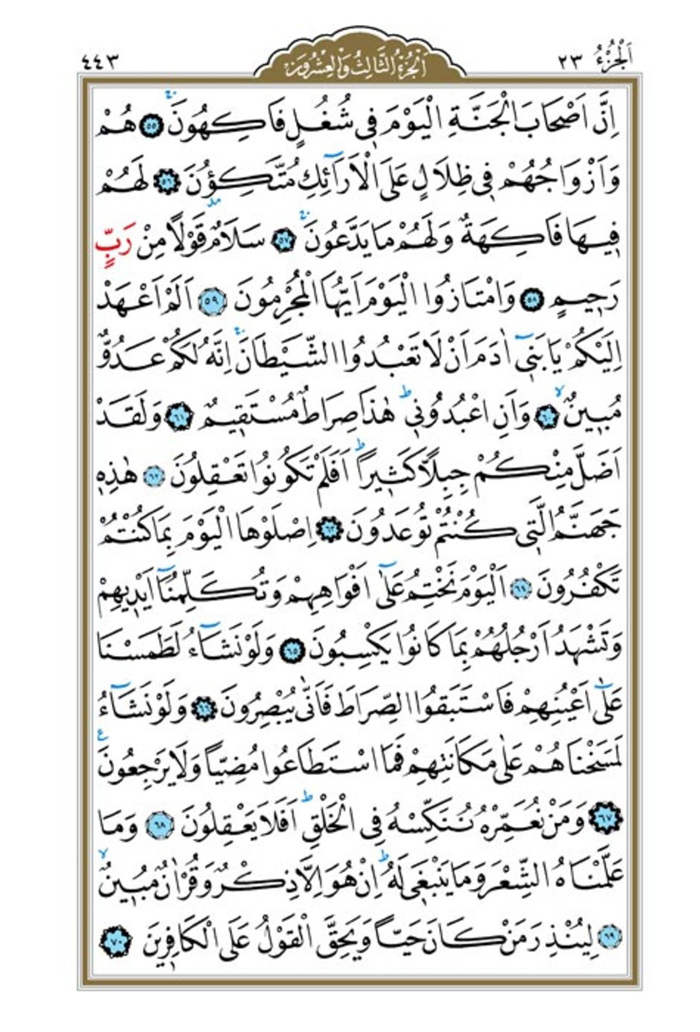 اَلْجُزْءُ ٢٣
اَلْجُزْءُ الثَّالِثُ وَالْعِشْرُونَ
٤٤٣
اِنَّ اَصْحَابَ الْجَنَّةِ الْيَوْمَ فٖى شُغُلٍ فَاكِهُونَۚ ﴿٥٥﴾ هُمْ
وَاَزْوَاجُهُمْ فٖى ظِلَالٍ عَلَى الْاَرَٓائِكِ مُتَّكِؤُ۫نَ ﴿٥٦﴾ لَهُمْ
فٖيهَا فَاكِهَةٌ وَلَهُمْ مَا يَدَّعُونَۚ ﴿٥٧﴾ سَلَامٌ۠ قَوْلًا مِنْ رَبٍّ
رَحٖيمٍ ﴿٥٨﴾ وَامْتَازُوا الْيَوْمَ اَيُّهَا الْمُجْرِمُونَ ﴿٥٩﴾ اَلَمْ اَعْهَدْ
اِلَيْكُمْ يَا بَنٖٓى اٰدَمَ اَنْ لَا تَعْبُدُوا الشَّيْطَانَۚ اِنَّهُ لَكُمْ عَدُوٌّ
مُبٖينٌۙ ﴿٦٠﴾ وَاَنِ اعْبُدُونٖىؕ هٰذَا صِرَاطٌ مُسْتَقٖيمٌ ﴿٦١﴾ وَلَقَدْ
اَضَلَّ مِنْكُمْ جِبِلًّا كَثٖيراًؕ اَفَلَمْ تَكُونُوا تَعْقِلُونَ ﴿٦٢﴾ هٰذِهٖ
جَهَنَّمُ الَّتٖى كُنْتُمْ تُوعَدُونَ ﴿٦٣﴾ اِصْلَوْهَا الْيَوْمَ بِمَا كُنْتُمْ
تَكْفُرُونَ ﴿٦٤﴾ اَلْيَوْمَ نَخْتِمُ عَلٰٓى اَفْوَاهِهِمْ وَتُكَلِّمُنَٓا اَيْدٖيهِمْ
وَتَشْهَدُ اَرْجُلُهُمْ بِمَا كَانُوا يَكْسِبُونَ ﴿٦٥﴾ وَلَوْ نَشَٓاءُ لَطَمَسْنَا
عَلٰٓى اَعْيُنِهِمْ فَاسْتَبَقُوا الصِّرَاطَ فَاَنّٰى يُبْصِرُونَ ﴿٦٦﴾ وَلَوْ نَشَٓاءُ
لَمَسَخْنَاهُمْ عَلٰى مَكَانَتِهِمْ فَمَا اسْتَطَاعُوا مُضِيًّا وَلَا يَرْجِعُونَ ع
﴿٦٧﴾ وَمَنْ نُعَمِّرْهُ نُنَكِّسْهُ فِى الْخَلْقِؕ اَفَلَا يَعْقِلُونَ ﴿٦٨﴾ وَمَا
عَلَّمْنَاهُ الشِّعْرَ وَمَا يَنْبَغٖى لَهُؕ اِنْ هُوَ اِلَّا ذِكْرٌ وَقُرْاٰنٌ مُبٖينٌۙ
﴿٦٩﴾ لِيُنْذِرَ مَنْ كَانَ حَيًّا وَيَحِقَّ الْقَوْلُ عَلَى الْكَافِرٖينَ ﴿٧٠﴾